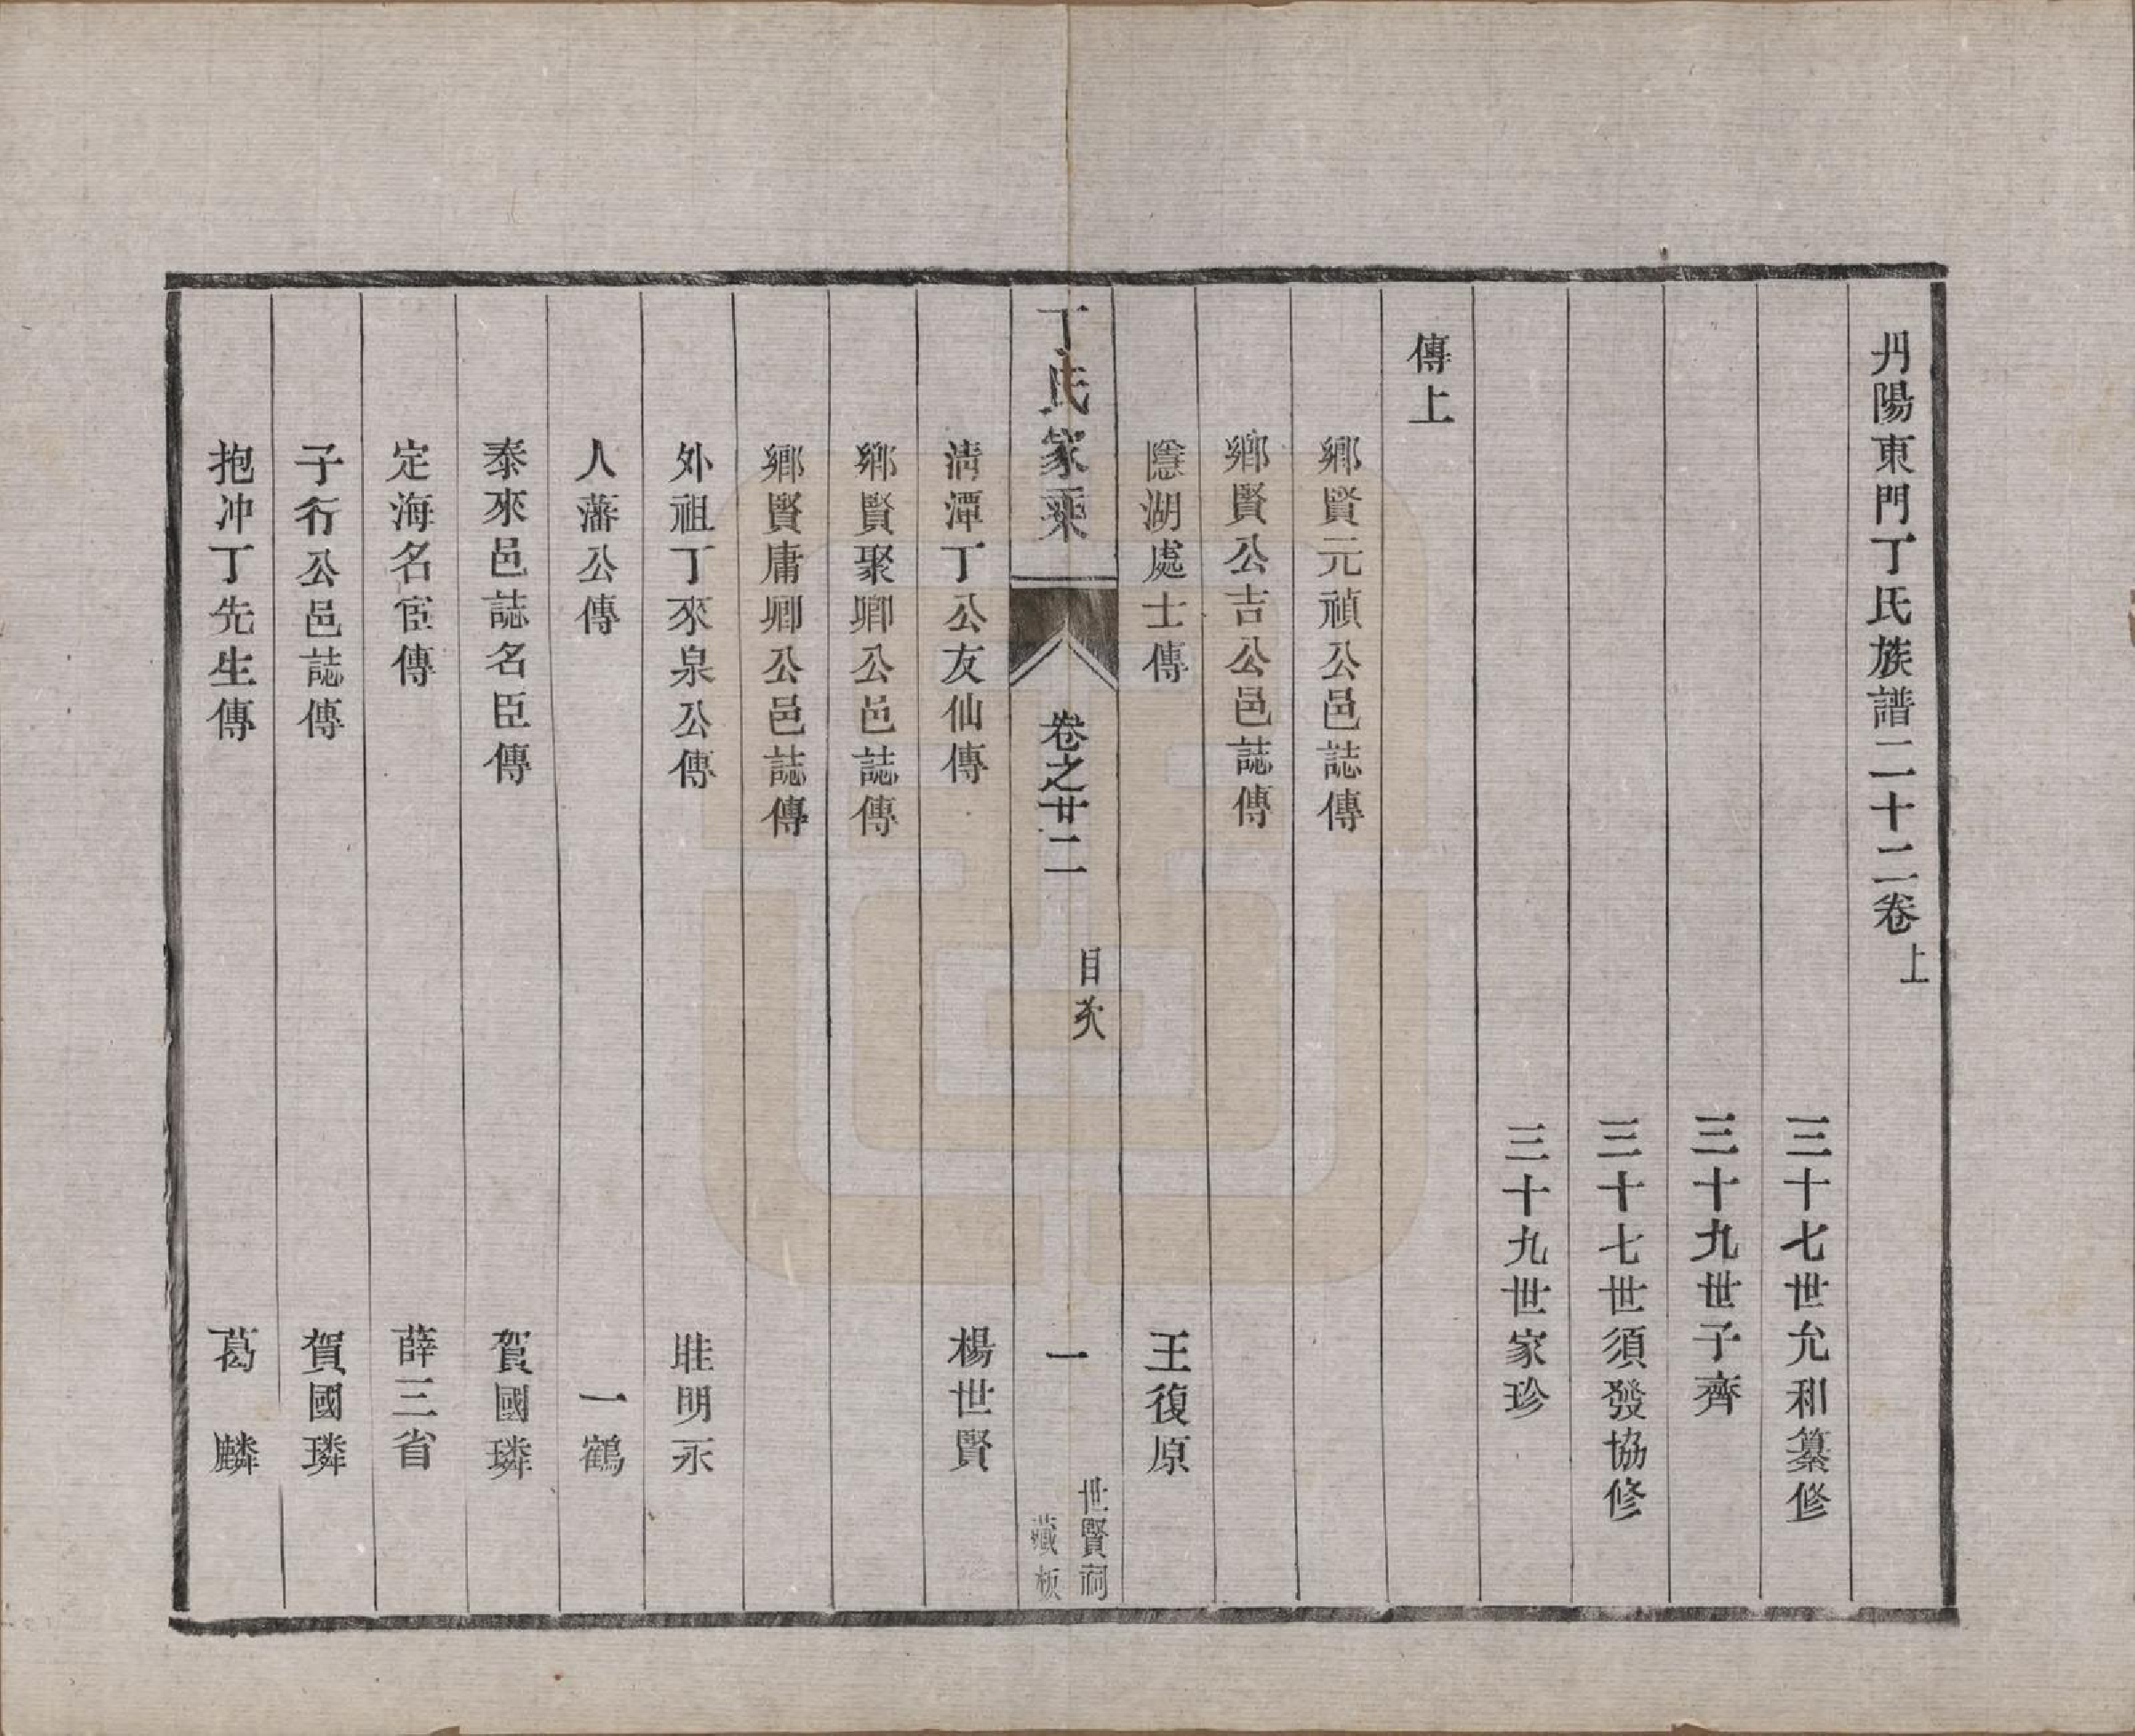 丹陽東門丁氏族譜二十二卷上
三十七世允和纂修
三十九世子齊
三十七世須發協修
三十九世家珍
傳上
鄉賢元禎公邑誌傳
鄉賢公吉公邑誌傳
隱湖處士傳 王復原
丁氏家乘 卷之廿二 目次 一 世賢祠藏板
清潭丁公友仙傳 楊世賢
鄉賢聚卿公邑誌傳
鄉賢庸卿公邑誌傳
外祖丁來泉公傳 眭明永
人藩公傳 一鶴
泰來邑誌名臣傳 賀國璘
定海名宦傳 薛三省
子行公邑誌傳 賀國璘
抱冲丁先生傳 葛麟